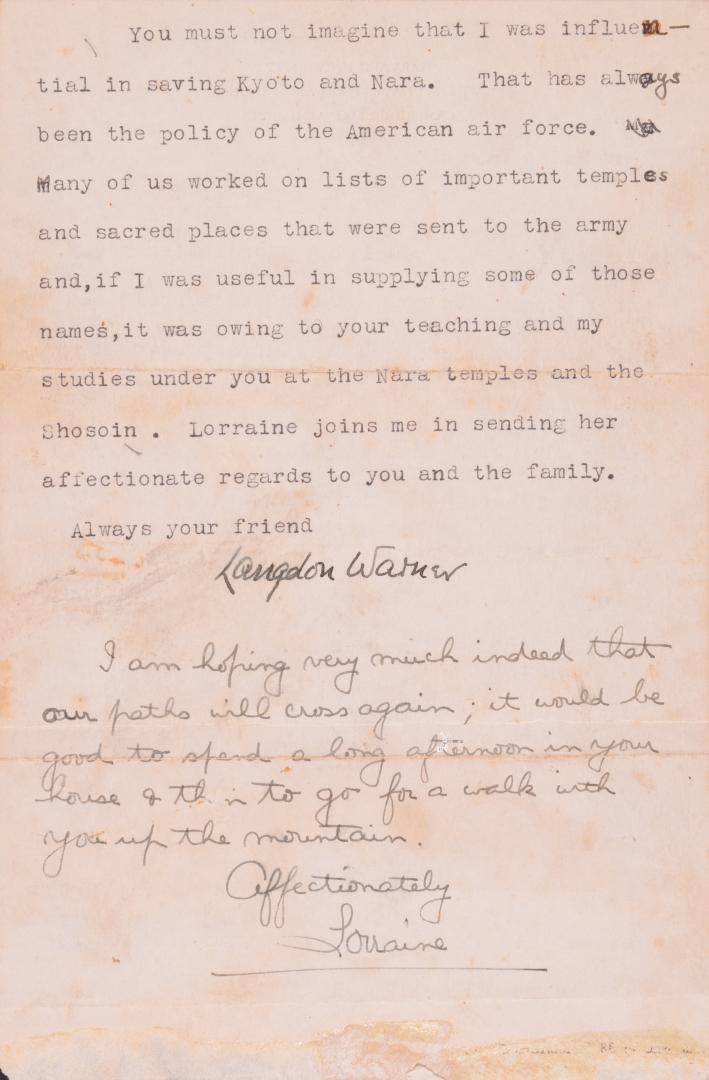 You must not imagine that I was influen-
tial in saving Kyoto and Nara. That has always
been the policy of the American air force.
Many of us worked on lists of important temples
and sacred places that were sent to the army
and,if I was useful in supplying some of those
names,it was owing to your teaching and my
studies under you at the Nara temples and the
Shosoin . Lorraine joins me in sending her
affectionate regards to you and the family.
Always your friend
Langdon Warner
I am hoping very much indeed that
our paths will cross again; it would be
good to spend a long afternoon in your
house & th n to go for a walk with
you up the mountain.
Affectionately
Lorraine